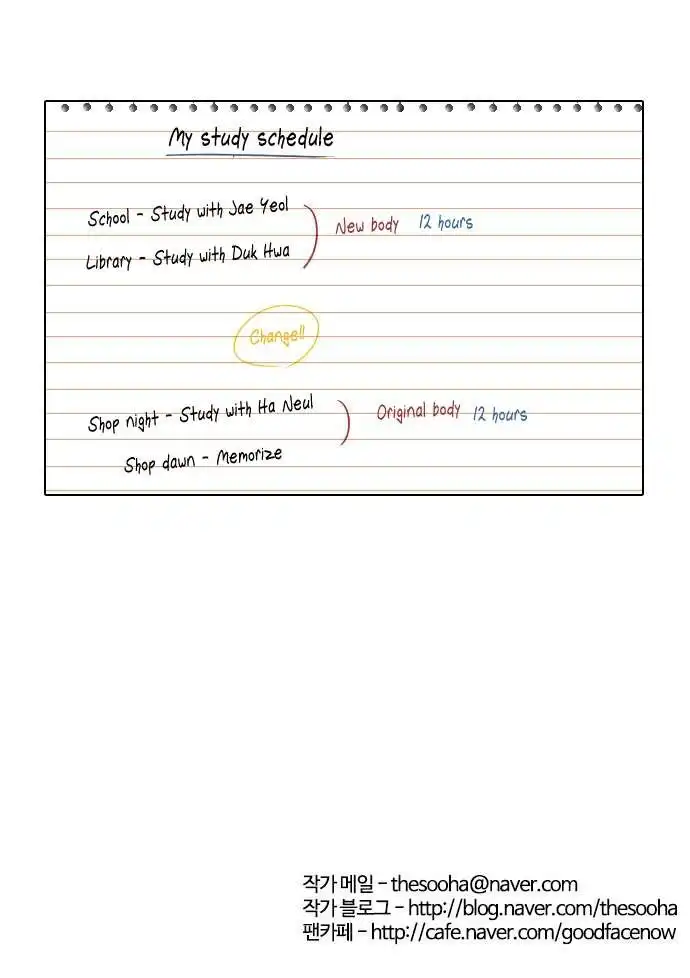 My study schedule
School - Study with Jae Yeol
New body 12 hours
Library - Study with Duk Hwa
Change!!
Shop night - Study with Ha Neul
Original body 12 hours
Shop dawn - Memorize
작가 메일 - thesooha@naver.com
작가 블로그 - http://blog.naver.com/thesooha
팬카페 - http://cafe.naver.com/goodfacenow